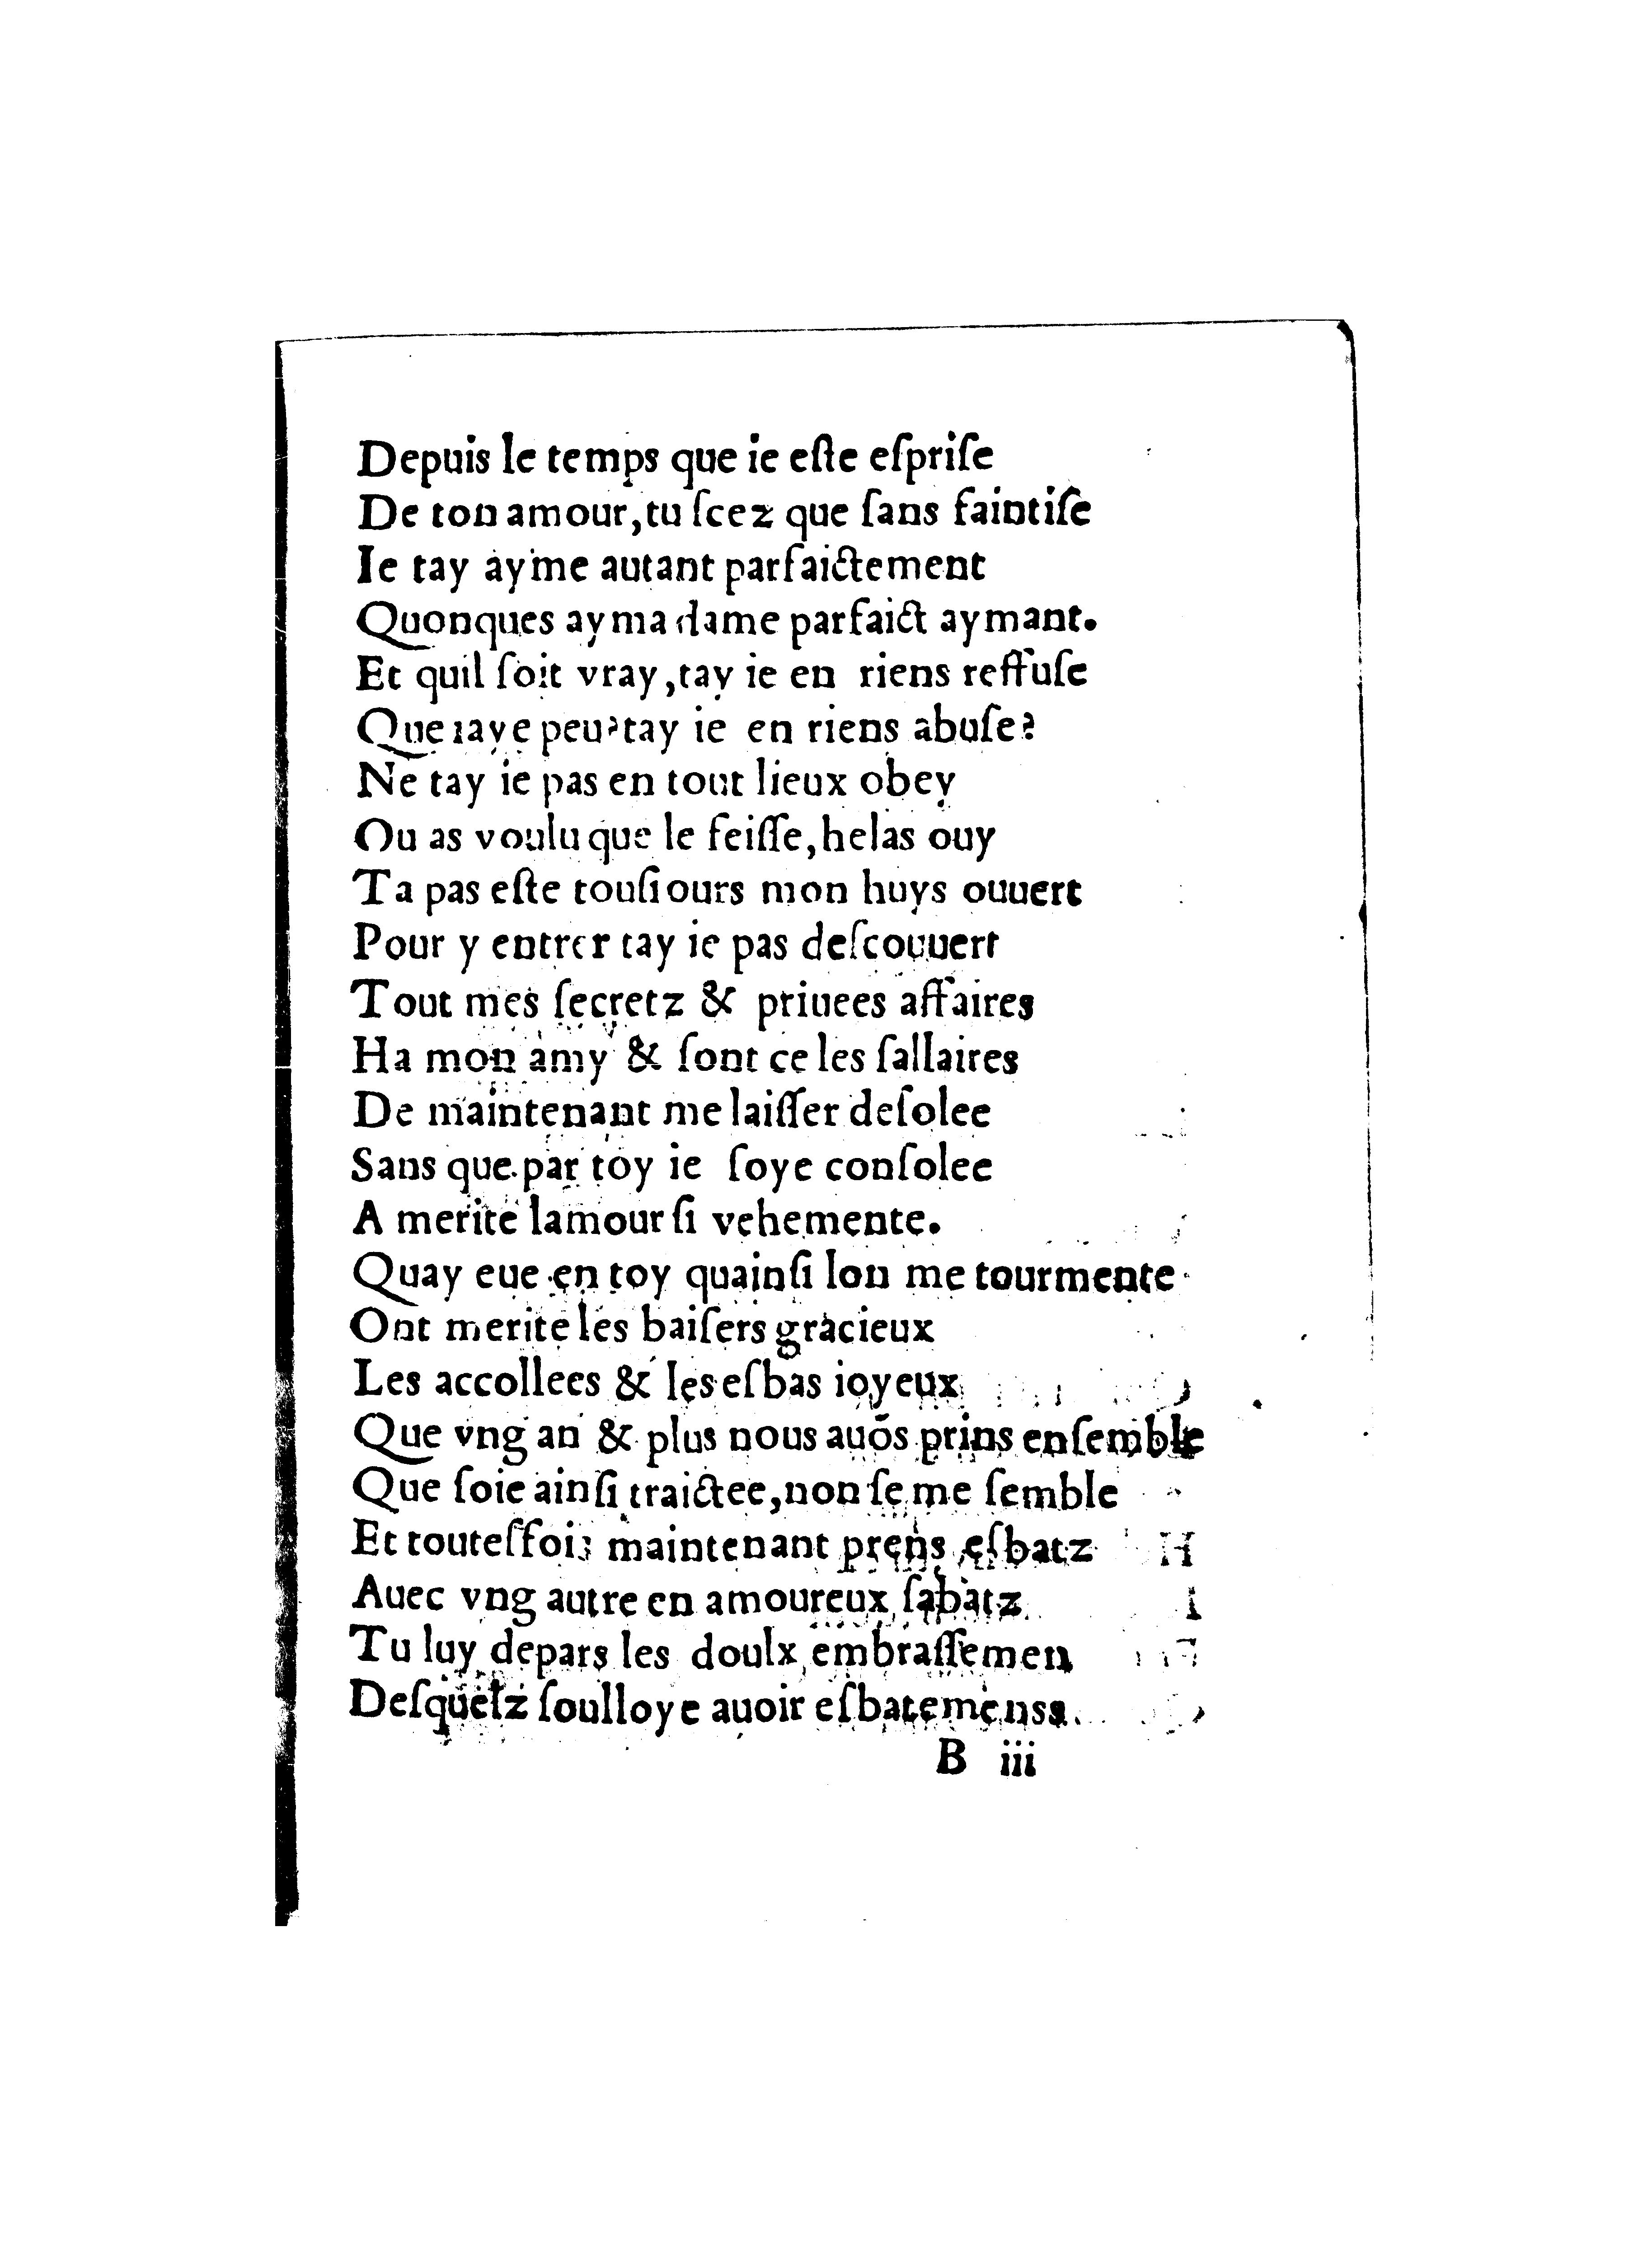 Depuis le temps que ie eſte eſpriſe
De ton amour, tu ſcez que ſans faintiſe
Ie tay ayme autant parfaictement
Quonques ayma dame parfaict aymant.
Et quil ſoit vray, tay ie en riens reffuſe
Que iaye peu? tay ie en riens abuſe?
Ne tay ie pas en tout lieux obey
Ou as voulu que le feiſſe, helas ouy
Ta pas eſte touſiours mon huys ouuert
Pour y entrer tay ie pas deſcouuert
Tout mes ſecretz & priuees affaires
Ha mon amy & ſont ce les ſallaires
De maintenant me laiſſer deſolee
Sans que par toy ie ſoye conſolee
A merite lamour ſi vehemente.
Quay eue en toy quainſi lon me tourmente
Ont merite les baiſers gracieux
Les accollees & les eſbas ioyeux
Que vng an & plus nous auõs prins enſemble
Que ſoie ainſi traictee, non ſe me ſemble
Et touteſfois maintenant prens eſbatz
Auec vng autre en amoureux ſabatz
Tu luy depars les doulx embraſſemen
Deſquelz ſoulloye auoir eſbatemenss
B iii